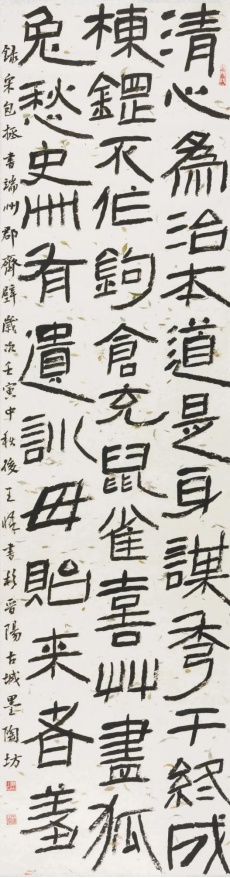 清心為治本道是身謀秀干終成
棟鋼不作鉤倉充鼠雀喜艸盡狐
兔愁史冊有遺訓毋貽来者羞
録宋包拯書端州郡齋壁歲次壬寅中秋後王𬀩書於晋陽古城墨陶坊